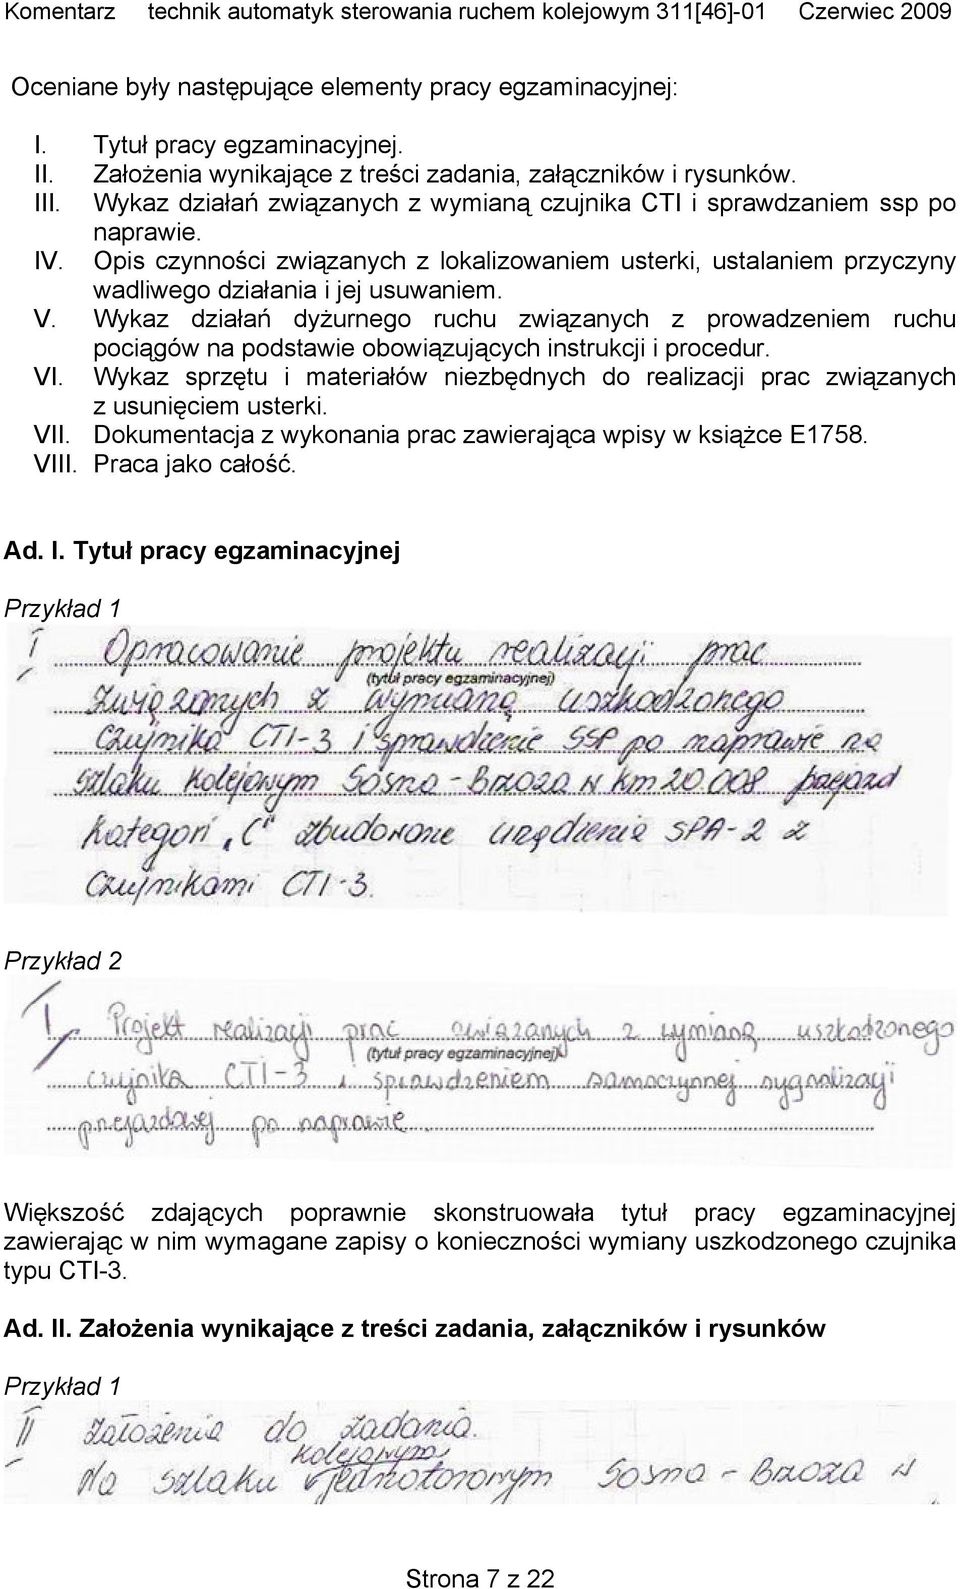 Komentarz technik automatyk sterowania ruchem kolejowym 311[46]-01 Czerwiec 2009
Oceniane były następujące elementy pracy egzaminacyjnej:
I. Tytuł pracy egzaminacyjnej.
II. Założenia wynikające z treści zadania, załączników i rysunków.
III. Wykaz działań związanych z wymianą czujnika CTI i sprawdzaniem ssp po
naprawie.
IV. Opis czynności związanych z lokalizowaniem usterki, ustalaniem przyczyny
wadliwego działania i jej usuwaniem.
V. Wykaz działań dyżurnego ruchu związanych z prowadzeniem ruchu
pociągów na podstawie obowiązujących instrukcji i procedur.
VI. Wykaz sprzętu i materiałów niezbędnych do realizacji prac związanych
z usunięciem usterki.
VII. Dokumentacja z wykonania prac zawierająca wpisy w książce E1758.
VIII. Praca jako całość.
Ad. I. Tytuł pracy egzaminacyjnej
Przykład 1
I Opracowanie projektu realizacji prac
(tytuł pracy egzaminacyjnej)
związanych z wymianą uszkodzonego
czujnika CTI-3 i sprawdzenie SSP po naprawie na
szlaku kolejowym Sosna - Brzoza w km 20.008 przejazd
kategori „C" zbudowane urządzenia SPA-2 z
czujnikami CTI-3.
Przykład 2
I. Projekt realizacji prac związanych z wymianą uszkodzonego
(tytuł pracy egzaminacyjnej)
czujnika CTI-3 i sprawdzeniem samoczynnej sygnalizacji
przejazdowej po naprawie.
Większość zdających poprawnie skonstruowała tytuł pracy egzaminacyjnej
zawierając w nim wymagane zapisy o konieczności wymiany uszkodzonego czujnika
typu CTI-3.
Ad. II. Założenia wynikające z treści zadania, załączników i rysunków
Przykład 1
II Założenia do zadania.
kolejowym
Na szlaku jednotorowym Sosna - Brzoza w
Strona 7 z 22